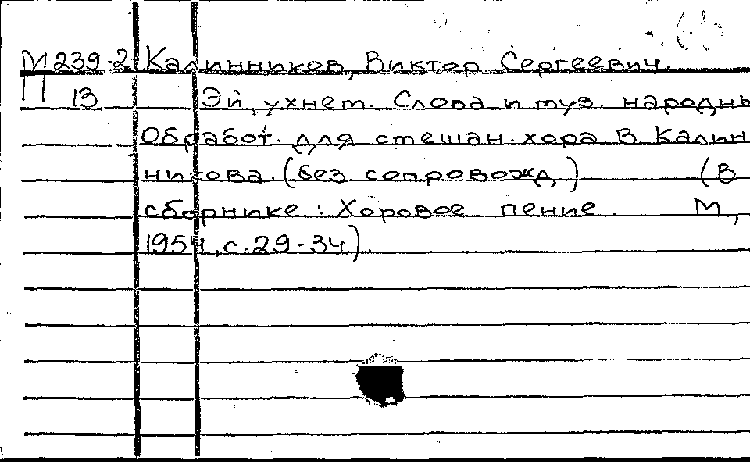 М239-2 Калинников, Виктор Сергеевич.
П 13 Эй, ухнем. Слова и муз. народны
Обработ. для смешан. хора В. Калин
никова. (без сопровожд.) (В
сборнике: Хоровое пение. М.,
1954, с. 29-34).